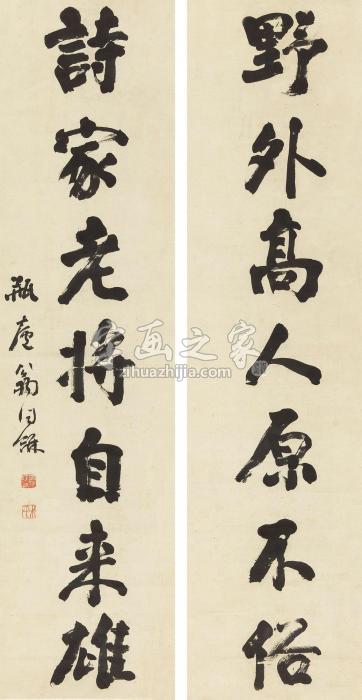 野外高人原不俗
詩家老將自来雄
瓶廬翁同龢
書画之家
zihuazhijia.com